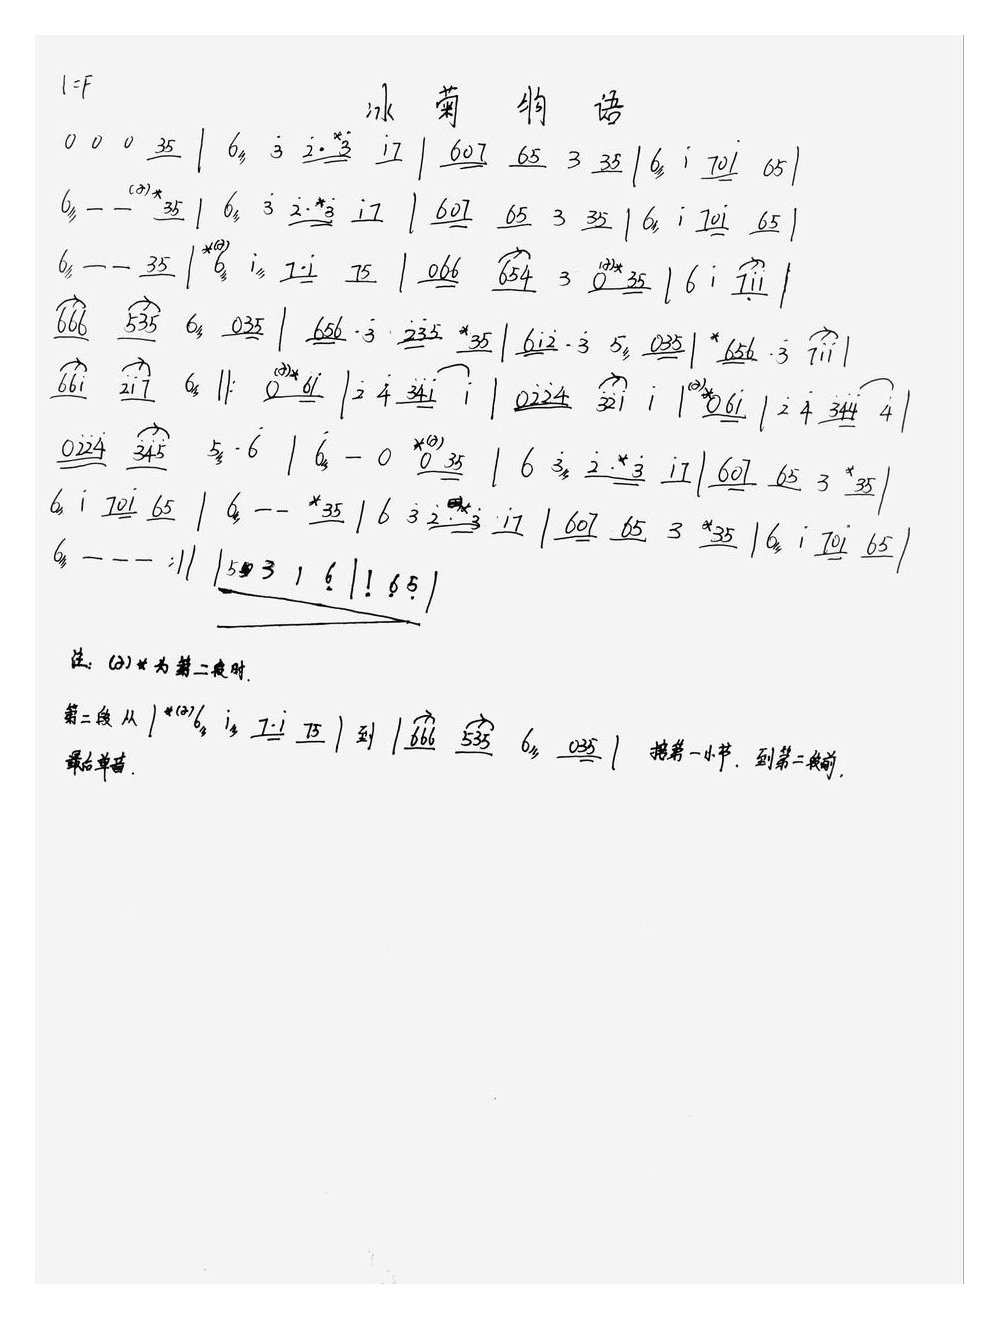 1=F
冰菊物语
0 0 0 35 | 6 3̇ 2̇·*3̇ i7 | 607 65 3 35 | 6 i 70i 65 |
6 — — (2)*35 | 6 3̇ 2̇·*3̇ i7 | 607 65 3 35 | 6 i 70i 65 |
6 — — 35 | *(2)6 i 7·i 75 | 066 654 3 0(2)*35 | 6 i 7ii |
666 535 6 035 | 656·3̇ 2̇3̇5 *35 | 6i2̇·3̇ 5 035 | *656·3̇ 7ii |
66i 2̇i7 6 ||: 0(2)*6i | 2̇ 4̇ 3̇4̇i i | 02̇2̇4̇ 3̇2̇i i | (2)*06i | 2̇ 4̇ 3̇4̇4̇ 4̇ |
02̇2̇4̇ 3̇4̇5̇ 5·6̇ | 6̇ — 0 *(2)0 35 | 6 3̇ 2̇·*3̇ i7 | 607 65 3 *35 |
6 i 70i 65 | 6 — — *35 | 6 3̇ 2̇·*3̇ i7 | 607 65 3 *35 | 6 i 70i 65 |
6 — — — :|| | 5 3 1 6̣ | 1̣ 6̣ 5̣ |
注: (2)*为第二段时.
第二段从 | *(2)6 i 7·i 75 | 到 | 666 535 6 035 | 接第一小节. 到第二段前.
最后单音.